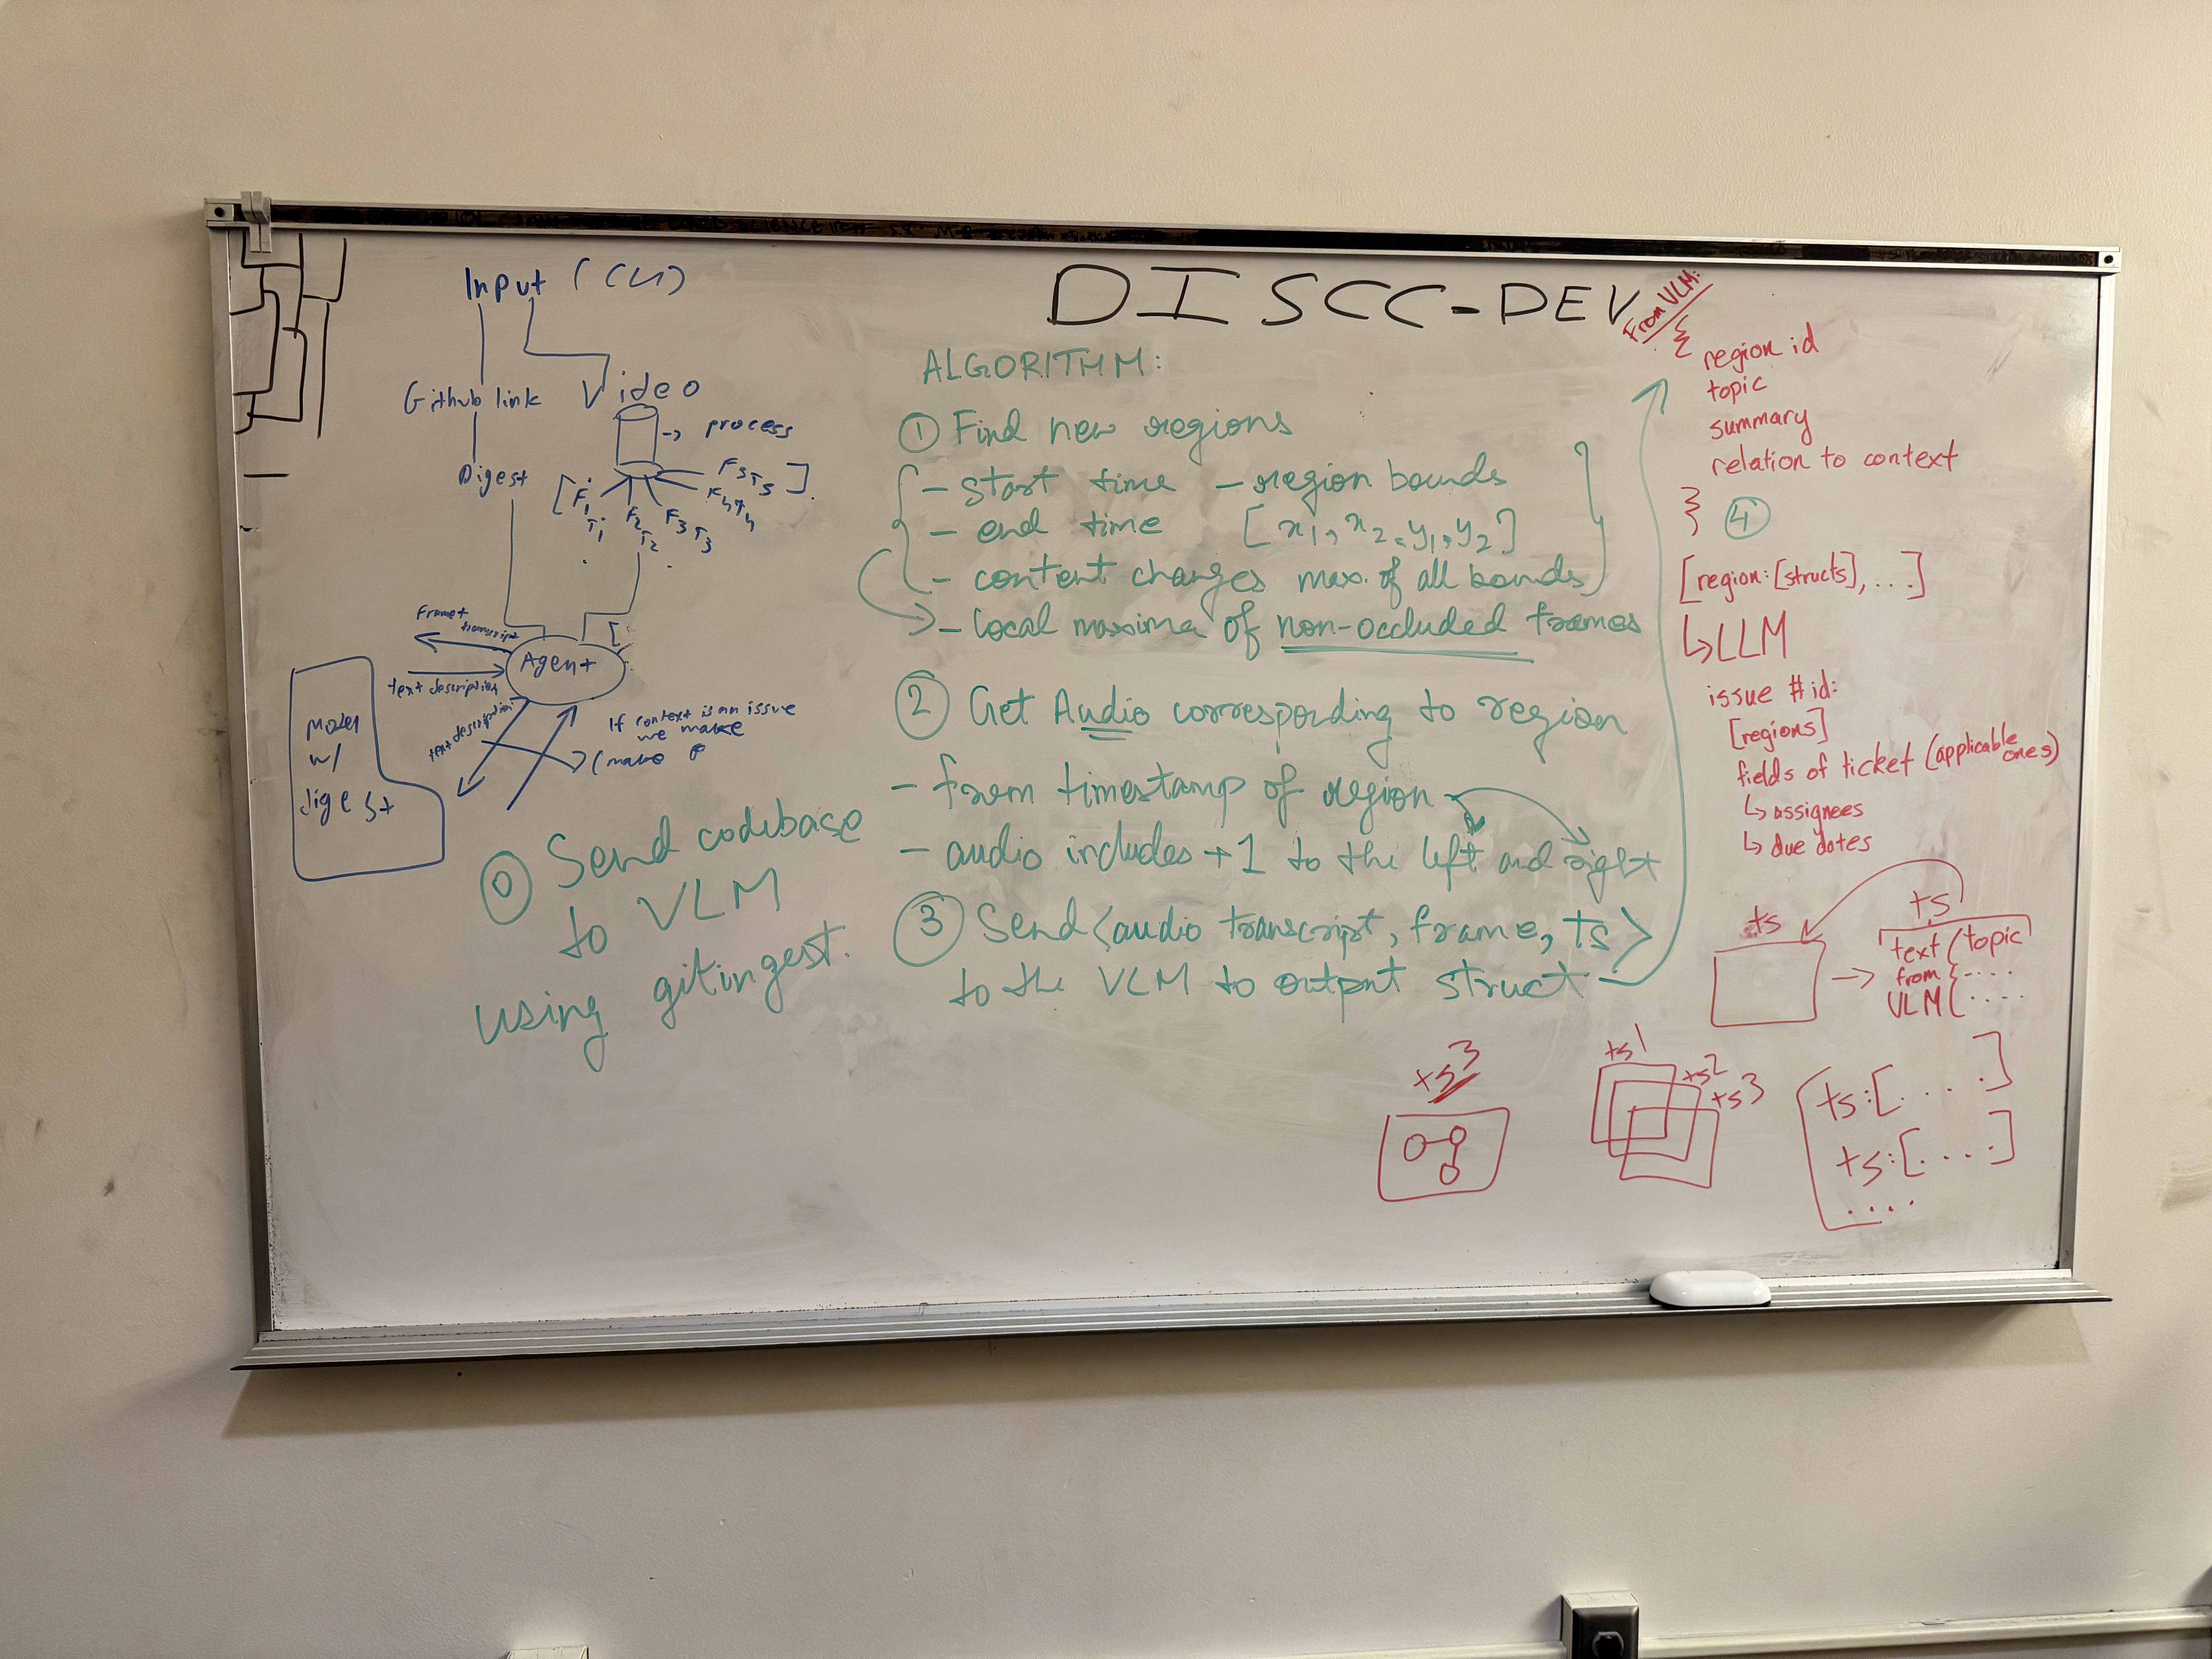 DISCC-DEV
Input (CLI)
Github link
Video
Digest
-> process
[F1 T1
F2 T2
F3 T3
F4 T4
F5 T5].
Frame+
transcript
text description
Agent
[
text description
If context is an issue
we make
(make
Model
w/
digest
⓪ Send codebase
to VLM
using gitingest.
ALGORITHM:
① Find new regions
- start time - region bounds
- end time [x1, x2, y1, y2]
- content changes max. of all bounds
- local maxima of non-occluded frames
② Get Audio corresponding to region
- from timestamp of region
- audio includes +1 to the left and right
③ Send <audio transcript, frame, ts>
to the VLM to output struct
From VLM:
{
region id
topic
summary
relation to context
}
④
[region:[structs], ...]
↳ LLM
issue #id:
[regions]
fields of ticket (applicable
ones)
↳ assignees
↳ due dates
ts
ts
text (topic
from {....
VLM (....
ts3
ts1
ts2
ts3
ts:[....]
ts:[....]
....